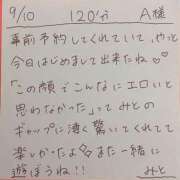 9/10 120分 A様
事前予約してくれていて、やっと
今日はじめまして出来たね♡
「この顔でこんなにエロいと
思わなかった」って みとの
ギャップに凄く驚いてくれてて
楽しかったよ また一緒に
遊ぼうね!! みと